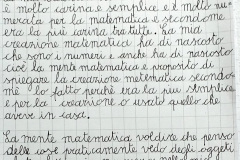 è molto carina e semplice e il molto nu-
merata per la matematica e secondome
era la più carina tra tutte. La mia
creazione matematica ha di nascosto
che sono i numeri e anche ha di nascosto
cioè la mente matematica e proposito di
spiegare la creazione metematica secondo
me l'ho fatto perché era la più semplice
e per la creazione o usato quello che
avevo in casa.
La mente matematica voldire che penso
delle cose praticamente vedo degli oggetti